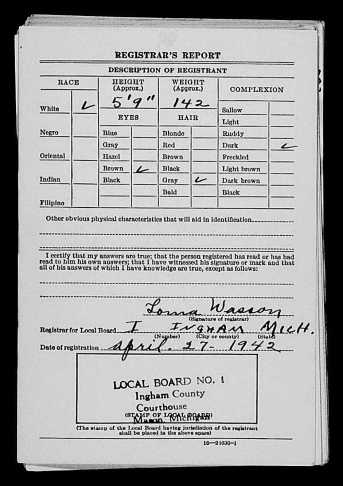 REGISTRAR'S REPORT
DESCRIPTION OF REGISTRANT
RACE
HEIGHT (Approx.)
WEIGHT (Approx.)
COMPLEXION
5'9"
142
White ✓
Sallow
EYES
HAIR
Light
Negro
Blue
Blonde
Ruddy
Gray
Red
Dark ✓
Oriental
Hazel
Brown
Freckled
Brown ✓
Black
Light brown
Indian
Black
Gray ✓
Dark brown
Bald
Black
Filipino
Other obvious physical characteristics that will aid in identification
I certify that my answers are true; that the person registered has read or has had
read to him his own answers; that I have witnessed his signature or mark and that
all of his answers of which I have knowledge are true, except as follows:
Lorna Wasson
(Signature of registrar)
Registrar for Local Board I INGHAM MICH.
(Number) (City or county) (State)
Date of registration April. 27- 1942
LOCAL BOARD NO. 1
Ingham County
Courthouse
(STAMP OF LOCAL BOARD)
Mason, Michigan
(The stamp of the Local Board having jurisdiction of the registrant
shall be placed in the above space)
16—21630-1